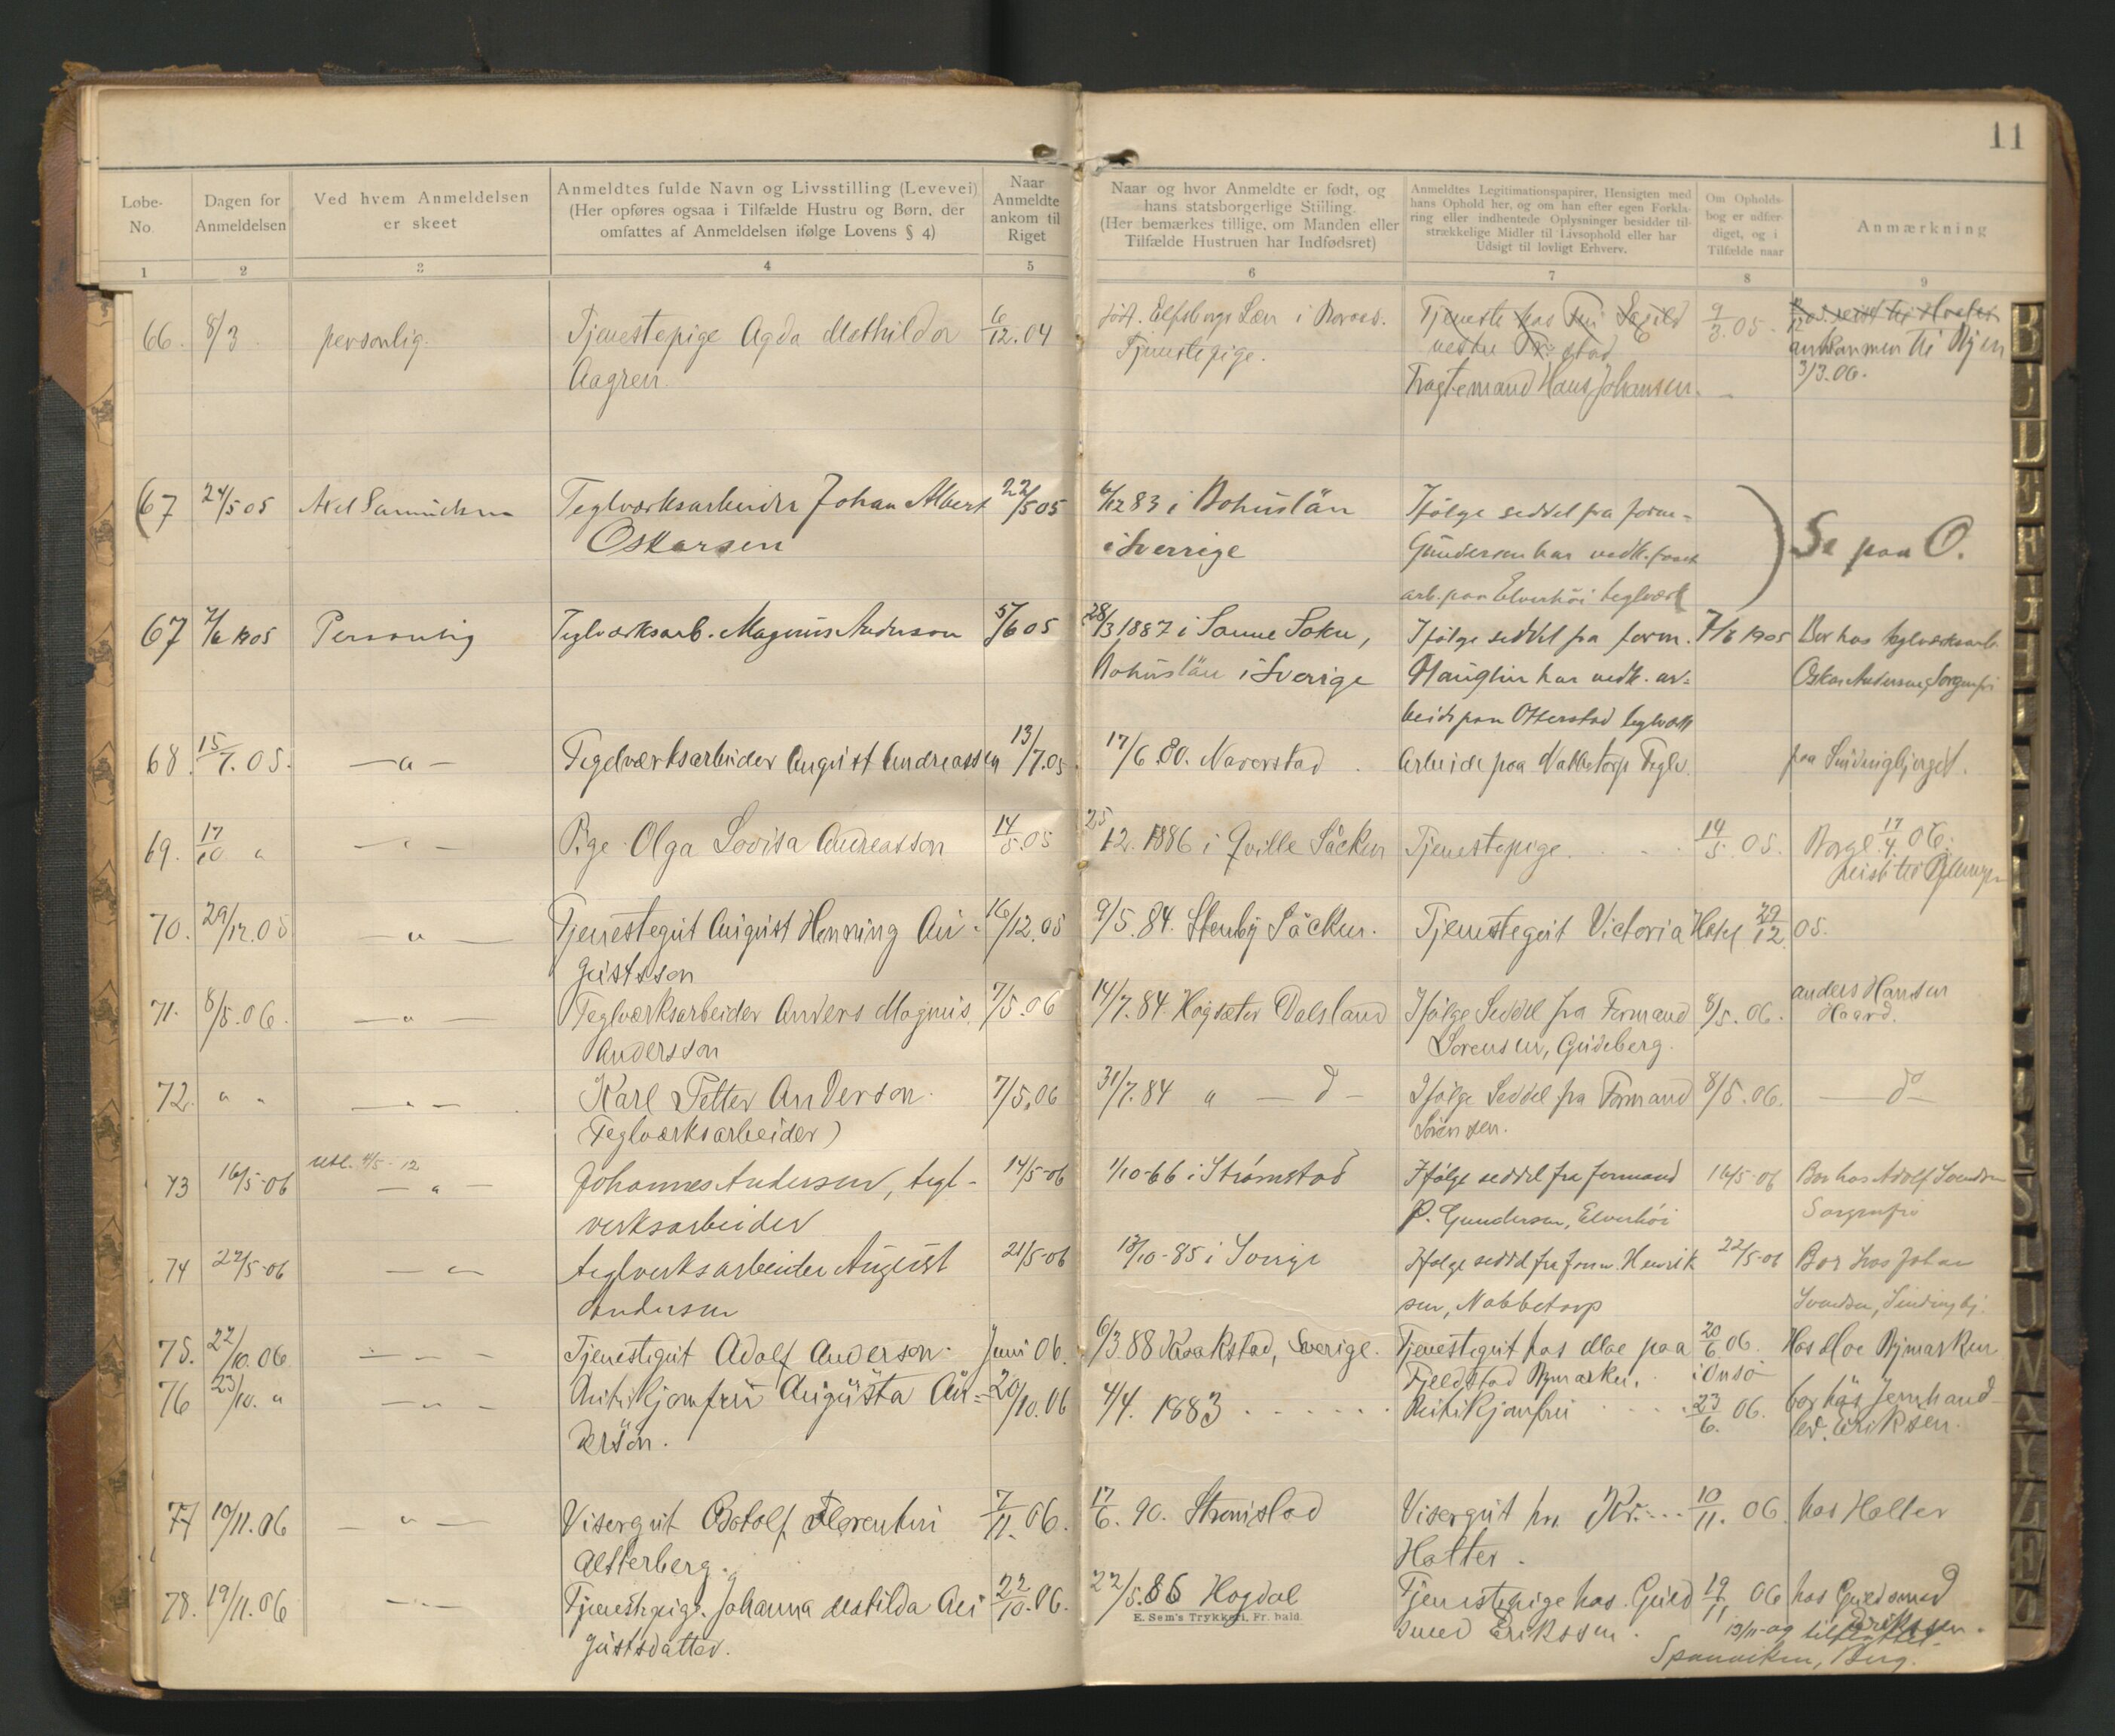 11
Løbe-No.
Dagen for Anmeldelsen
Ved hvem Anmeldelsen er skeet
Anmeldtes fulde Navn og Livsstilling (Levevei)
(Her opføres ogsaa i Tilfælde Hustru og Børn, der
omfattes af Anmeldelsen ifølge Lovens § 4)
Naar Anmeldte ankom til Riget
Naar og hvor Anmeldte er født, og
hans statsborgerlige Stiiling.
(Her bemærkes tillige, om Manden eller
Tilfælde Hustruen har Indfødsret)
Anmeldtes Legitimationspapirer, Hensigten med
hans Ophold her, og om han efter egen Forkla-
ring eller indhentede Oplysninger besidder til-
strækkelige Midler til Livsophold eller har
Udsigt til lovligt Erhverv.
Om Opholds-
bog er udfær-
diget, og i
Tilfælde naar
Anmærkning
1 2 3 4 5 6 7 8 9
66. 8/3 personlig. Tjenestepige Agda Mathilda 6/12.04 født. Elfsborgs Læn i Boraas. Tjeneste hos 9/3.05.
Aagren. Tjenestepige. ankommen til Byen
Fragtemand Hans Johansen. 3/3.06.
67 24/5 05 Teglværksarbeider Johan Albert 22/5 05 6/12 83 i Bohuslän Ifølge seddel fra form=
Oskarsen i Sverrige Gundersen har vedk. faaet Se paa O.
arb. paa Elverhöi teglværk
67 7/6 1905 Personlig Teglværksarb. Magnus Anderson 5/6 05 28/3 1887 i Sanne Sokn, Ifølge seddel fra form. 7/6 1905 Bor hos teglværksarb.
Bohuslän i Sverige Hauglin har vedk. ar= Oskar Andersen, Sorgenfri
beide paa Otterstad teglværk
68. 15/7.05. — " — Tegelværksarbeider August Andreassen 13/7.05 17/6.80. Naverstad Arbeide paa Nabbetorp Teglv.
69. 17/10 " — " — Pige Olga Lovisa Andreasson 14/5.05 25/12. 1886 i Qville Såcken Tjenestepige. 14/5.05. 17/4.06.
reist til
70. 29/12.05 — " — Tjenestegut August Henning Au- 16/12.05 9/5.84. Stenby Såcken. Tjenestegut Victoria Hotel 29/12.05.
gustsson
71. 8/5.06. — " — Teglværksarbeider Anders Magnus 7/5.06 14/7.84. Høgsæter Dalsland Ifølge Seddel fra Formand 8/5.06. Anders Hansen
Andersson Sorensen, Gudeberg. Haard.
72. " " — " — Karl Petter Anderson. 7/5.06 31/7.84 " — d — Ifølge Seddel fra Formand 8/5.06. — do —
(Teglværksarbeider) Sörensen.
73 16/5-06 — " — Johannes Andersen, tegl- 14/5-06 1/10-66 i Strømstad Ifølge seddel fra formand 16/5-06 Bor hos Adolf Svendsen
verksarbeider P. Gundersen, Elverhöi Sorgenfri
74 22/5-06 — " — teglverksarbeider August 21/5-06 13/10-85 i Sverige Ifølge seddel fra form. Henrik 22/5-06 Bor hos Johan
Andersen sen, Nabbetorp
75. 22/10.06. — " — Tjenestegut Adolf Anderson. Juni 06. 6/3.88 Krokstad, Sverige. Tjenestegut hos Moe paa 20/6.06. Hos Moe Bymarken
Fjeldstad Bymarken. i Onsø
76 23/10. " — " — Butikjomfru Augusta An= 20/10.06 4/4. 1883 Butikjomfru 23/6.06. bor hos Jernhand-
derson. ler. Eriksen.
77 10/11.06 — " — Visergut Botolf Florentin 7/11.06. 17/6. 90. Strømstad Visergut hos 10/11.06. hos Holter
Alsterberg. Holter.
78. 19/11.06 — " — Tjenestepige. Johanna Matilda Au 22/10.06. 22/5.86 Hogdal Tjenestepige hos Guld 19/11 06 hos Guldsmed
gustsdatter. smed Erikssen. Erikssen.
E. Sem's Trykkeri, Fr. hald.
Berg.
B D E F